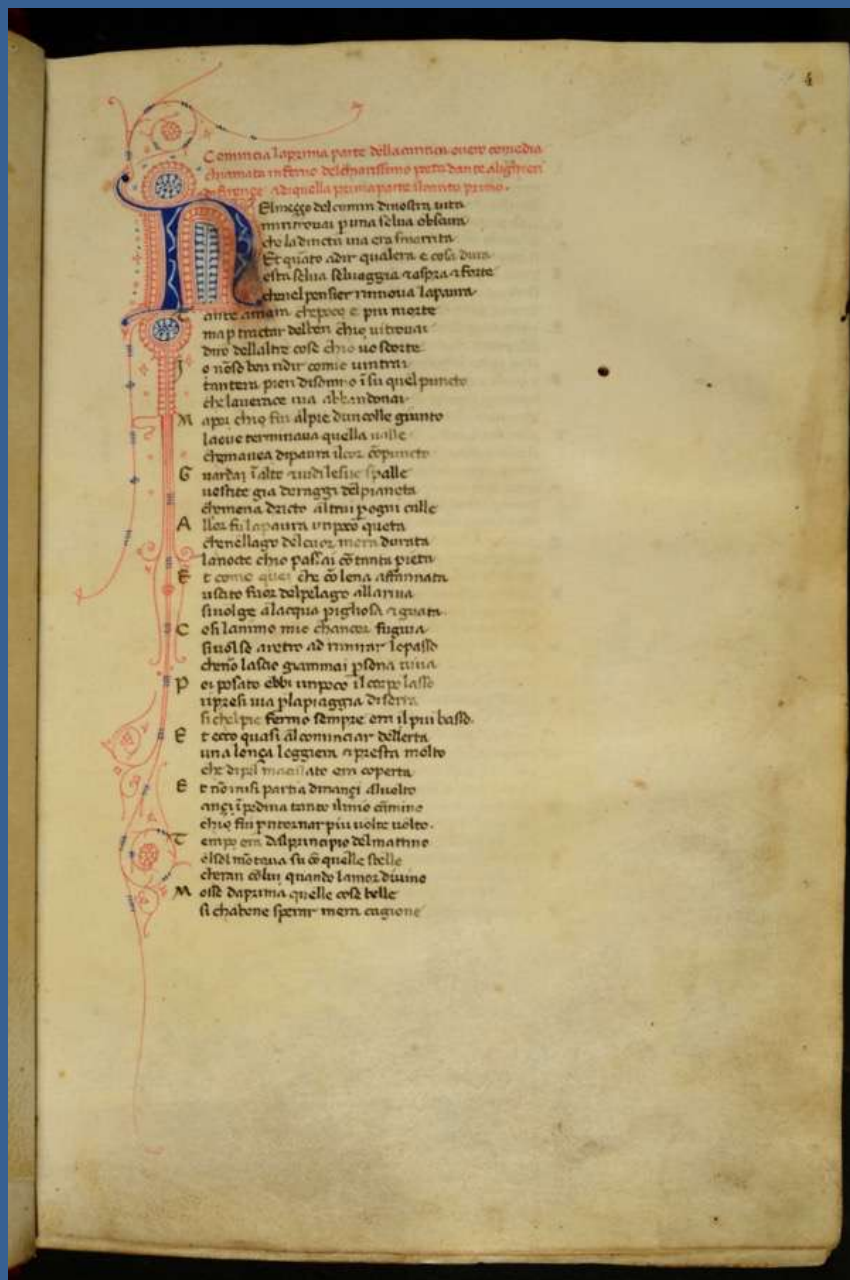 4
Comincia laprima parte dellacantica overo comedia
chiamata inferno delchiarissimo poeta dante alighieri
di firençe adiquella prima parte ilcanto primo.
NElmeçço del camin dinostra vita
mi ritrovai p una selva obscura
che la diricta via era smarrita
Et quāto adir qualera e cosa dura
esta selva selvaggia ⁊ aspra ⁊ forte
che nel pensier rinnova la paura
Tante amara che poco e piu morte
ma p tractar delben chio vi trovai
diro dellaltre cose chio vo scorte
Io nōso ben ridir comio vintrai
tantera pien disonno ī su quel puncto
che laverace via abbandonai
Mapoi chio fui alpie dun colle giunto
laove terminava quella valle
chemavea dipaura ilcor cōpuncto
Guardai ī alto ⁊ vidi lesue spalle
vestite gia deraggi delpianeta
chemena dricto altrui p ogni calle
Allor fu la paura un poco queta
chenellago del cuor mera durata
lanocte chio passai cō tanta pieta
Et come quei che cō lena affannata
uscito fuor delpelago allariva
sivolge alacqua perigliosa ⁊ guata
Cosi lanimo mio chancor fugiva
sivolse aretro ad rimirar lo passo
che nō lascio giammai psona viva
Poi posato ebbi unpoco il corpo lasso
ripresi via p lapiaggia diserta
si chelpie fermo sempre era il piu basso.
Et ecco quasi al cominciar dellerta
una lonça leggiera ⁊ presta molto
che dipel maculato era coperta
Et nō misi partia dinançi alvolto
ançi īpediva tanto ilmio cāmino
chio fui p ritornar piu volte volto.
Tempo era dalprincipio delmattino
elsol mōtava su cō quelle stelle
cheran cōlui quando lamor divino
Mosse daprima quelle cose belle
si chabene sperar mera cagione